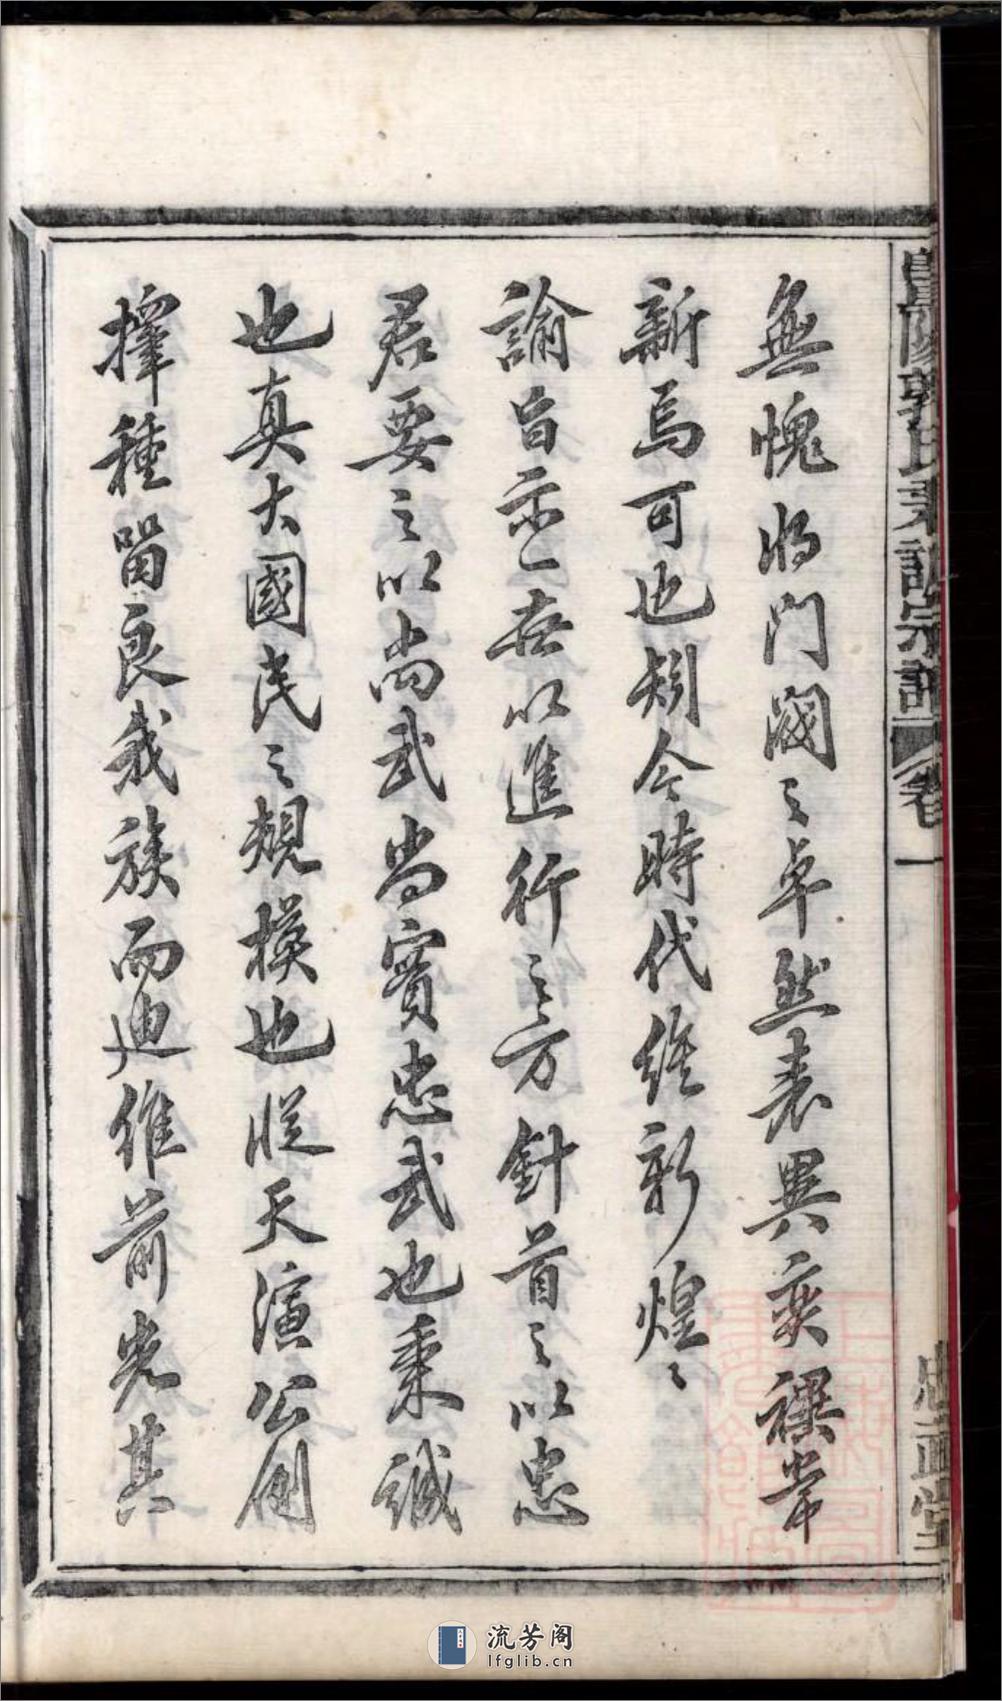 無愧將門閥之卓然表異奕禩常
新焉可也矧今時代維新煌〻
諭旨示一套以進行之方針首之以忠
君要之以尚武尚實忠武也秉誠
也真大國民之規模也從天演公例
擇種留良我族而迪維前光其
郭氏秉誠宗譜 卷一
忠武堂
流芳阁
lfglib.cn